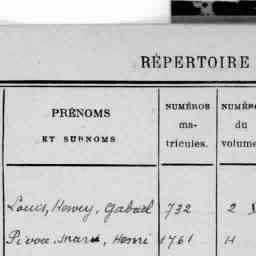 RÉPERTOIRE
PRÉNOMS
ET SURNOMS
NUMÉROS
ma-
tricules.
NUMÉR
du
volume
Louis, Henry, Gabriel 732 2
Marie, Henri 1761 H